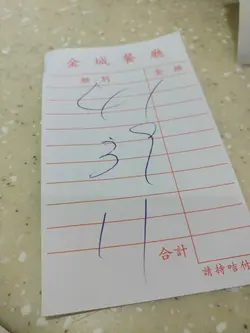 金城餐廳
類別 金額
41
39
11
合計
請持咭付